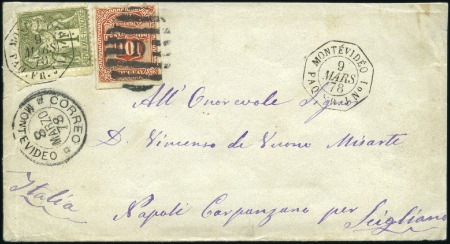 MONTÉVIDÉO
9
MARS
78
PAQ. FR. J No 1
9
MARS
78
10
CORREO
8
MARZO
78
MONTEVIDEO
All' Onorevole Signor
D. Vincenso de Vuono Misarte
Italia
Napoli Carpanzano per Scigliano